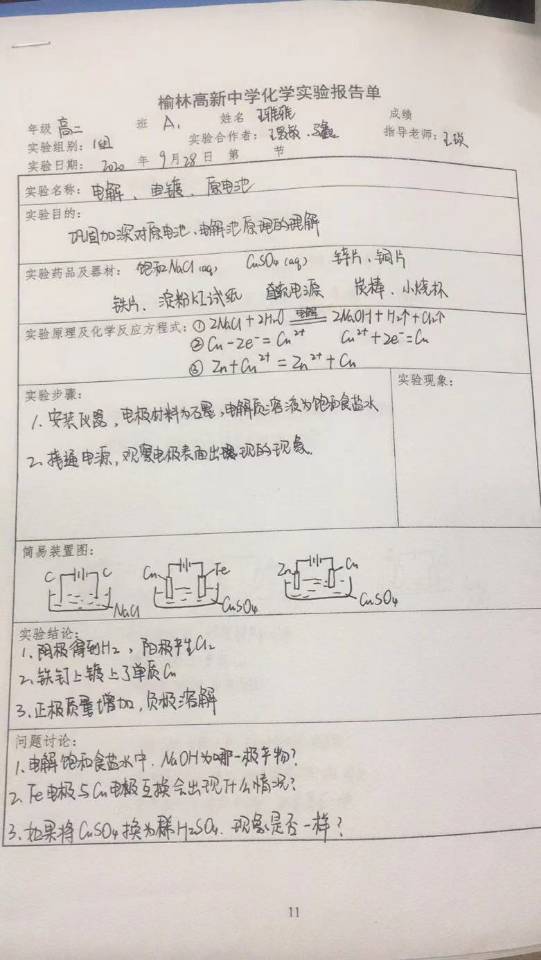 榆林高新中学化学实验报告单
年级 高二 班 A₁ 姓名 成绩
实验组别: 1组 实验合作者: 指导老师:
实验日期: 2020 年 9月28日 第 节
实验名称: 电解、电镀、原电池
实验目的:
巩固加深对原电池、电解池原理的理解
实验药品及器材: 饱和NaCl(aq) CuSO₄(aq) 锌片、铜片
铁片、淀粉KI试纸 直流电源 炭棒、小烧杯
实验原理及化学反应方程式: ① 2NaCl+2H₂O 电解 2NaOH+H₂↑+Cl₂↑
② Cu-2e⁻=Cu²⁺ Cu²⁺+2e⁻=Cu
③ Zn+Cu²⁺=Zn²⁺+Cu
实验步骤: 实验现象:
1、安装仪器,电极材料为石墨,电解质溶液为饱和食盐水
2、接通电源,观察电极表面出现的现象。
简易装置图:
C C Cu Fe Zn Cu
NaCl CuSO₄ CuSO₄
实验结论:
1、阴极得到H₂,阳极产生Cl₂
2、铁钉上镀上了单质Cu
3、正极质量增加,负极溶解
问题讨论:
1、电解饱和食盐水中,NaOH为哪一极产物?
2、Fe电极与Cu电极互换会出现什么情况?
3、如果将CuSO₄换为稀H₂SO₄,现象是否一样?
11